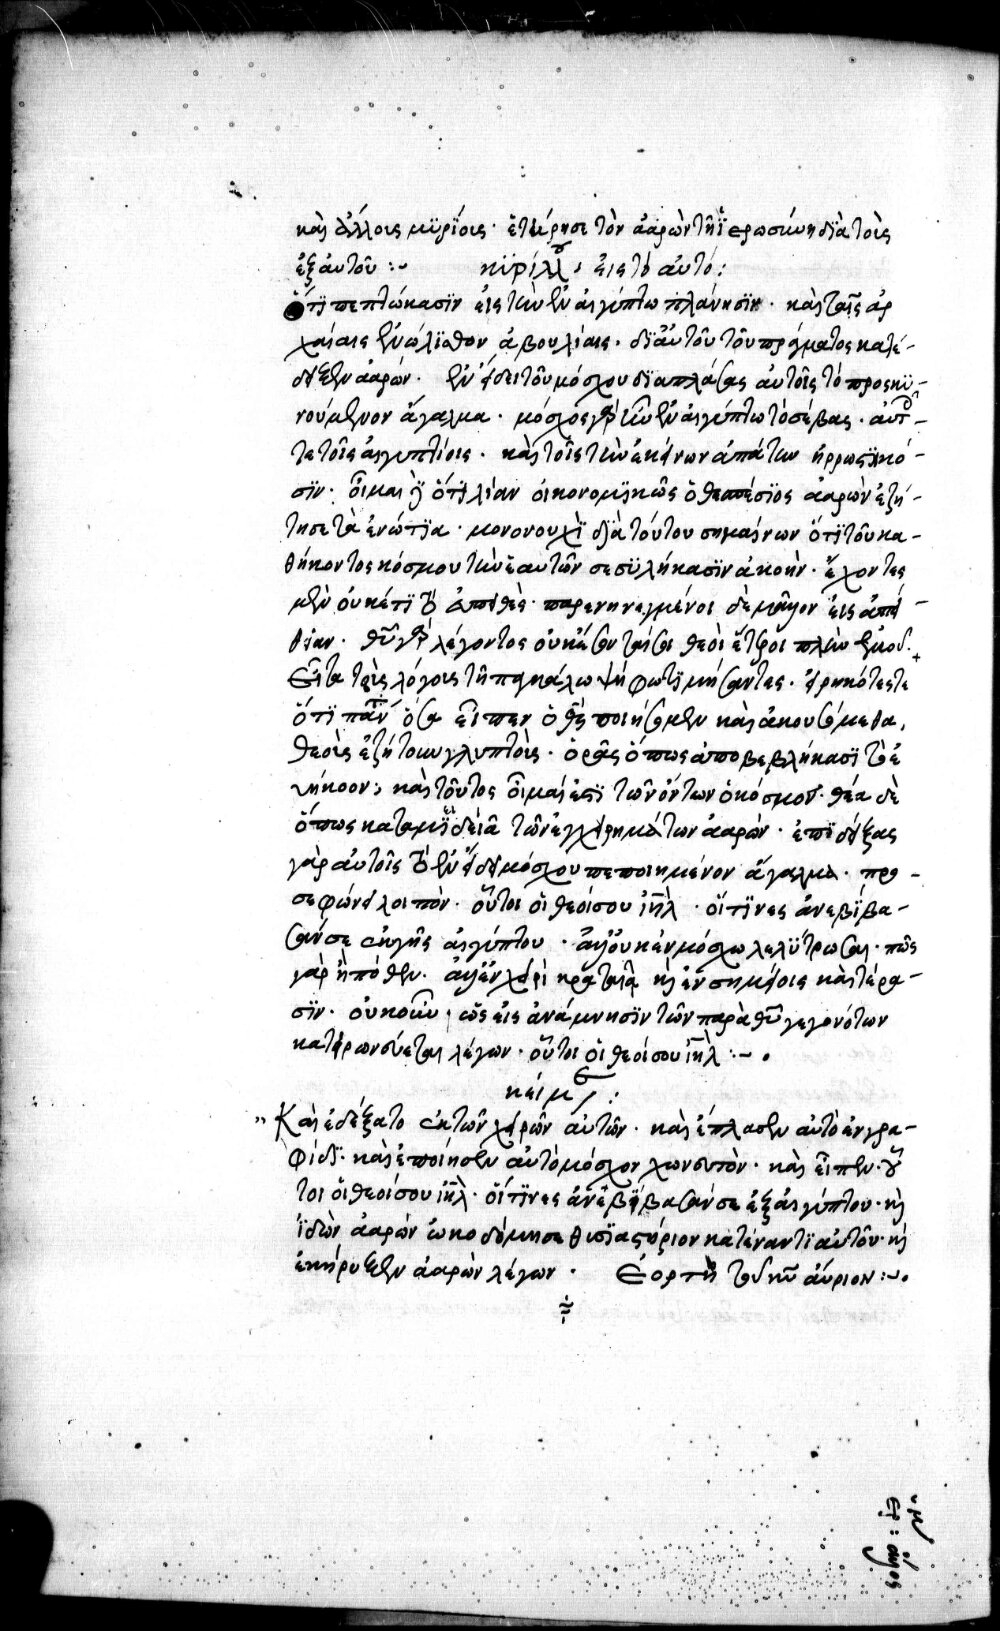 καὶ ἄλλοις μυρίοις· ἐτήρησε τὸν ἀαρὼν τῆ ἱερωσύνη διὰ τοὺς
ἐξ αὐτοῦ :~ κυρίλλου εἰς τὸ αὐτό :
ὅτι πεπτώκασιν εἰς τὴν ἐν αἰγύπτω πλάνησιν· καὶ ταῖς ἀρ
χαίαις ἐνώλισθον ἀβουλίαις· δι αὐτοῦ τοῦ πράγματος κατέ-
δειξεν ἀαρών· ἐν εἴδει τοῦ μόσχου διαπλάσας αὐτοῖς τὸ προσκυ-
νούμενον ἄγαλμα· μόσχος γὰρ ἦν ἐν αἰγύπτω τὸ σέβας· αὐτ-
τε τοῖς αἰγυπτίοις· καὶ τοῖς τὴν ἐκείνων ἀπάτην ἠρρωστηκό-
σιν· οἶμαι δὲ ὅτι λίαν οἰκονομικῶς ὁ θεσπέσιος ἀαρὼν ἐζή-
τησε τὰ ἐνώτια· μονονουχὶ διὰ τούτου σημαίνων ὅτι τοῦ κα-
θήκοντος κόσμου τὴν ἑαυτῶν σεσυλήκασιν ἀκοήν· ἔχοντες
μὲν οὐκέτι τὸ εὐπειθές· παρενηνεγμένοι δὲ μᾶλλον εἰς ἀπεί-
θειαν· θεοῦ γὰρ λέγοντος οὐκ ἔσονταί σοι θεοὶ ἕτεροι πλὴν ἐμοῦ·
εἶτα τοῖς λόγοις τῆ παγκάλω ψήφω τιμήσαντες· εἰρηκότες τε
ὅτι πάνθ' ὅσα εἶπεν ὁ θεὸς ποιήσομεν καὶ ἀκουσόμεθα,
θεοὺς ἐζήτουν γλυπτούς· ὁρᾶς ὅπως ἀποβεβλήκασι τὸ εὐ
ήκοον; καὶ τοῦτος οἶμαί ἐστι τῶν ὤτων ὁ κόσμος· θέα δὲ
ὅπως καταμειδιᾶ τῶν ἐγχειρημάτων ἀαρών· ἐπιδείξας
γὰρ αὐτοῖς τὸ ἐν εἴδει μόσχου πεποιημένον ἄγαλμα· προ-
σεφώνει λοιπόν· οὗτοι οἱ θεοί σου ἰηλ· οἵτινες ἀνεβίβα-
σάν σε ἐκ γῆς αἰγύπτου· ἀλλ' οὐκ ἐν μόσχω λελύτρωσαι· πῶς
γὰρ ἢ πόθεν· ἀλλ' ἐν χειρὶ κραταιᾶ καὶ ἐν σημείοις καὶ τέρα-
σιν· οὐκοῦν, ὡς εἰς ἀνάμνησιν τῶν παρὰ θεοῦ γεγονότων
κατειρωνεύεται λέγων· οὗτοι οἱ θεοί σου ἰηλ :~ ·
κείμ :
" Καὶ ἐδέξατο ἐκ τῶν χειρῶν αὐτῶν· καὶ ἔπλασεν αὐτὸ ἐν γρα-
φίδι· καὶ ἐποίησεν αὐτὸ μόσχον χωνευτόν· καὶ εἶπεν· οὗ
τοι οἱ θεοί σου ἰηλ· οἵτινες ἀνεβίβασάν σε ἐξ αἰγύπτου· καὶ
ἰδὼν ἀαρὼν ὠκοδόμησε θυσιαστήριον κατέναντι αὐτοῦ· καὶ
ἐκήρυξεν ἀαρὼν λέγων· ἑορτὴ τοῦ κυ αὔριον :~ ·